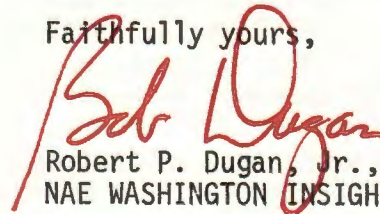 Faithfully yours,
Bob Dugan
Robert P. Dugan, Jr.,
NAE WASHINGTON INSIGH